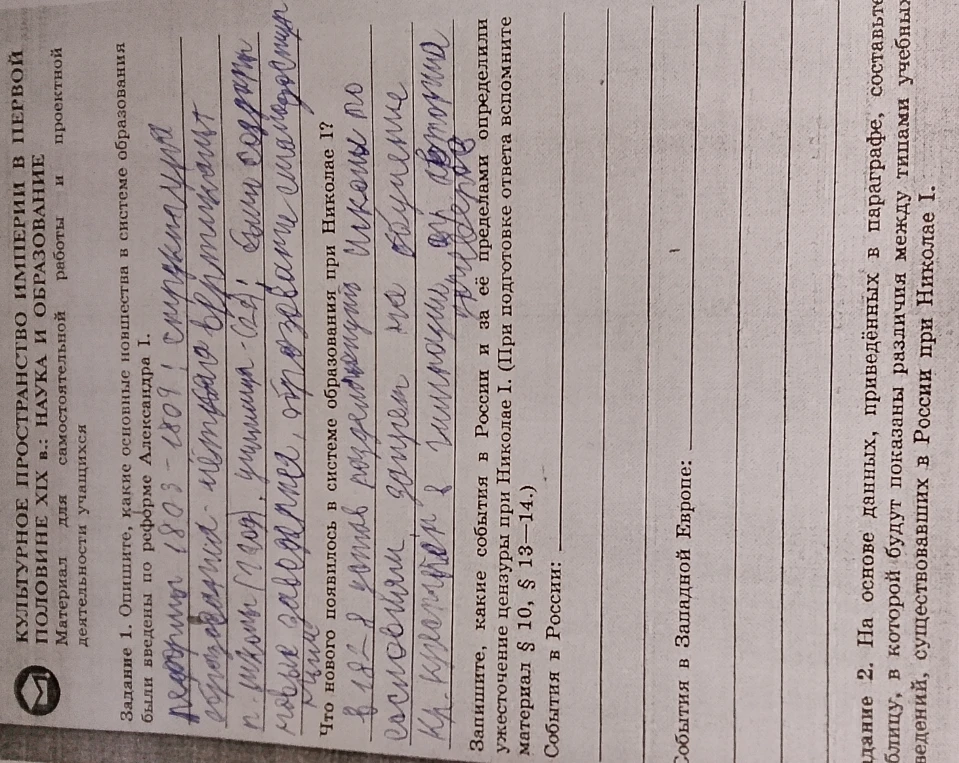 КУЛЬТУРНОЕ ПРОСТРАНСТВО ИМПЕРИИ В ПЕРВОЙ
ПОЛОВИНЕ XIX в.: НАУКА И ОБРАЗОВАНИЕ
Материал для самостоятельной работы и проектной
деятельности учащихся
Задание 1. Опишите, какие основные новшества в системе образования
были введены по реформе Александра I.
реформы 1803-1804: структура
образования - чёткая вертикаль:
п. школы (1 год), училища (2г), были созданы
новые заведения, образование
Что нового появилось в системе образования при Николае I?
В 1828 устав школы по
сословиям запрет на обучение
кр. крестьян в гимназии,
Запишите, какие события в России и за её пределами определили
ужесточение цензуры при Николае I. (При подготовке ответа вспомните
материал § 10, § 13—14.)
События в России:
События в Западной Европе:
адание 2. На основе данных, приведённых в параграфе, составьте
блицу, в которой будут показаны различия между типами учебных
ведений, существовавших в России при Николае I.